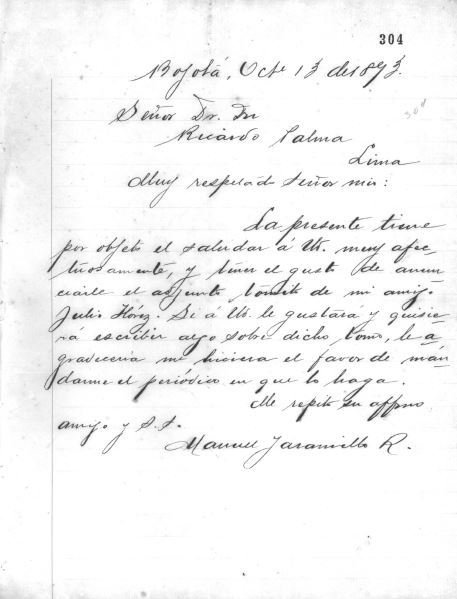 304
Bogotá, Octe 13 de 1893.
304
Señor Dr. Dn
Ricardo Palma
Lima
Muy respetado Señor mio:
La presente tiene
por objeto el saludar á U. muy afec-
tuosamente, y tener el gusto de anun
ciarle el adjunto tomito de mi amigo
Julio Flórez. Si á U. le gustará y quisie
rá escribir algo sobre dicho tomo, le a-
graveceria me hiciera el favor de man
darme el periódico en que lo haga.
Me repito su affmo
amigo y S. S.
Manuel Jaramillo R.